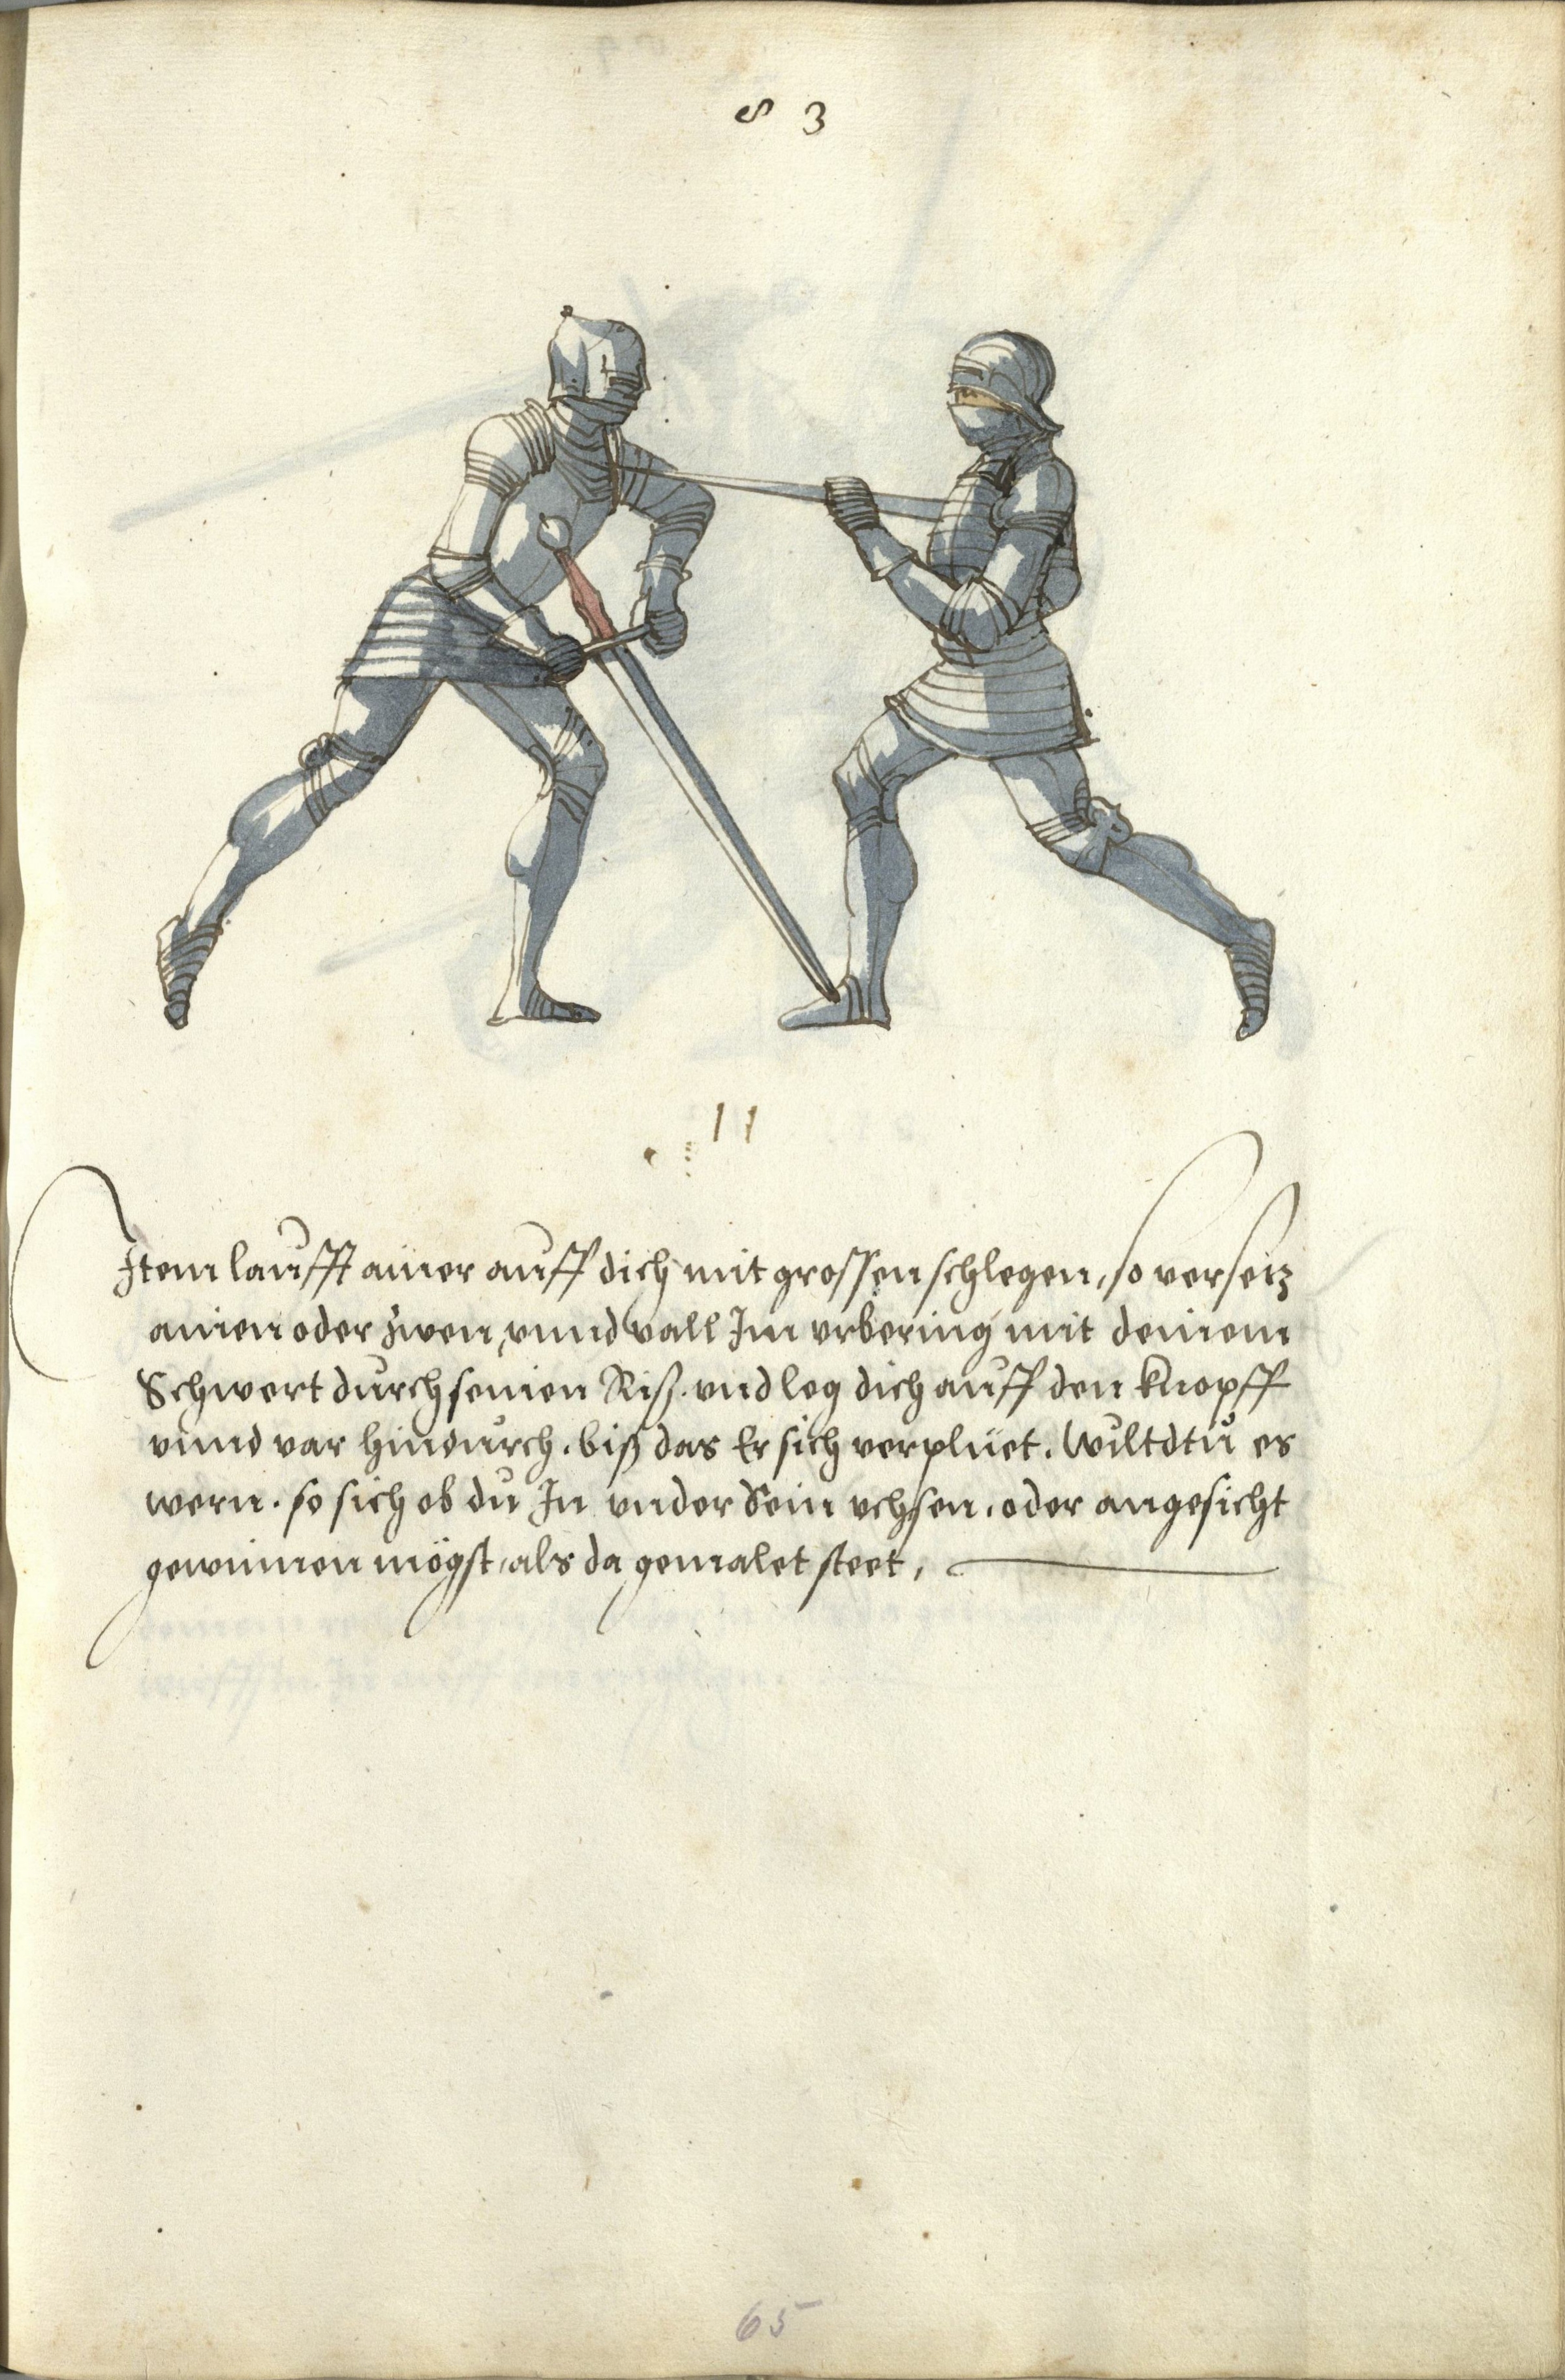 83
11
Item laufft ainer auff dich mit grossen schlegen, so versetz
ainen oder zwen, vnnd vall Im vrbering mit deinem
Schwert durch seinen Riß. vnd leg dich auff den knopff
vnnd var hindurch. biß das Er sich verplüet. Wiltdtu es
wern. so sich ob du In vnder Sein vchsen. oder angesicht
gewinnen mögst, als da gemalet steet,
65